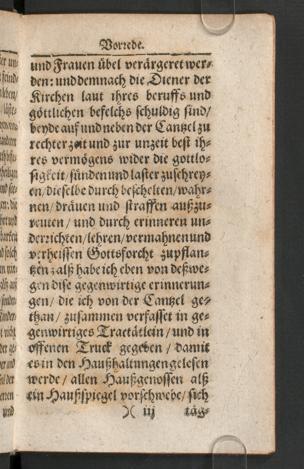 Vorrede.
und Frauen übel verärgeret wer-
den: und demnach die Diener der
Kirchen laut ihres beruffs und
göttlichen befelchs schuldig sind/
beyde auf und neben der Cantzel zu
rechter zeit und zur unzeit best ih-
res vermögens wider die gottlo-
sigkeit/ sünden und laster zuschrey-
en/ dieselbe durch beschelten/ wahr-
nen/ dräuen und straffen außzu-
reuten/ und durch erinneren un-
derrichten/ lehren/ vermahnen und
verheissen Gottsforcht zupflan-
tzen: alß habe ich eben von deßwe-
gen dise gegenwirtige erinnerun-
gen/ die ich von der Cantzel ge-
than/ zusammen verfasset in ge-
genwirtiges Tractätlein/ und in
offenen Truck gegeben/ damit
es in den Haußhaltungen gelesen
werde/ allen Haußgenossen alß
ein Haußspiegel vorschwebe/ sich
)( iij täg-